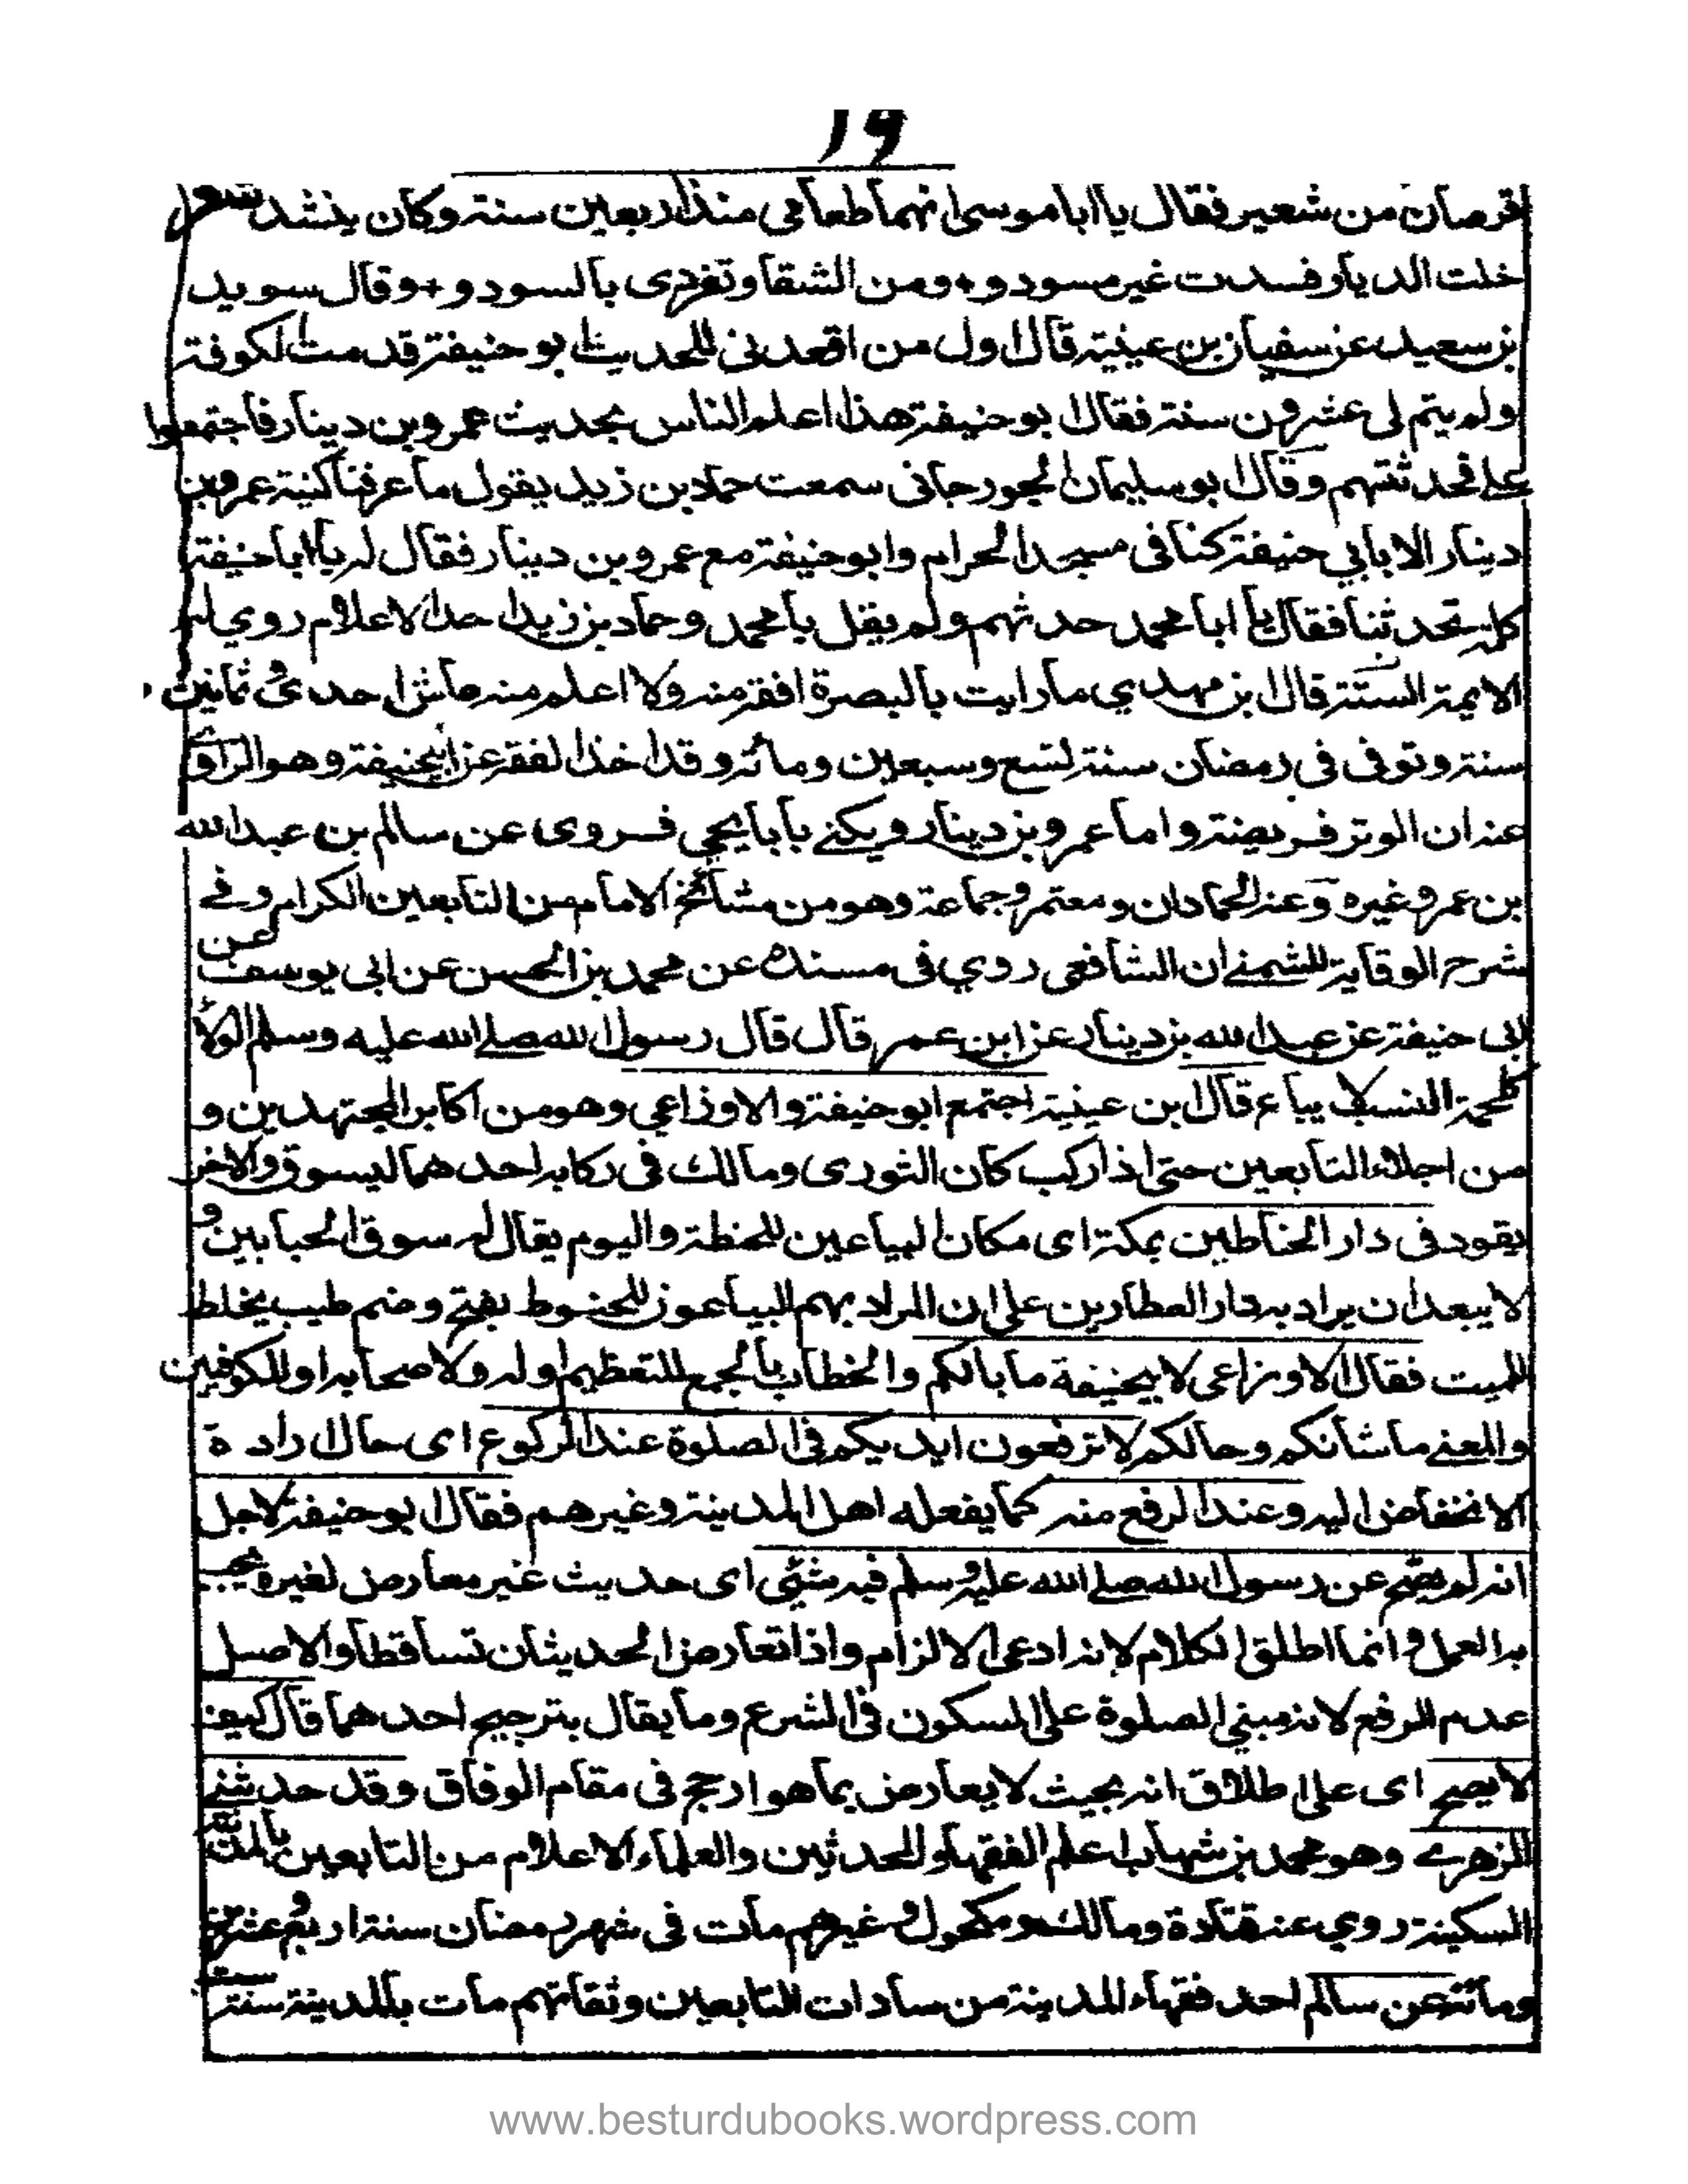 ١٩
قرصان من شعير فقال يا ابا موسى انهما طعامي منذ اربعين سنة وكان ينشد شعر
خلت الديار فسدت غير مسود و ومن الشقا وتفردى بالسودد + وقال سويد
بن سعيد عن سفيان بن عيينة قال اول من اقعدنى للحديث ابو حنيفة قدمت الكوفة
ولم يتم لى عشرون سنة فقال ابو حنيفة هذا اعلم الناس بحديث عمرو بن دينار فاجتمعوا
على فحدثتهم وقال ابو سليمان الجورجانى سمعت حماد بن زيد يقول ما عرفنا كنية عمرو بن
دينار الا بابي حنيفة كنا فى مسجد الحرام وابو حنيفة مع عمرو بن دينار فقال له يا ابا حنيفة
كلمه تحدثنا فقال يا ابا محمد حدثهم ولم يقل يا محمد وحماد بن زيد احد الاعلام روي له
الايمة الستة قال ابن مهدي ما رايت بالبصرة افقه منه ولا اعلم منه عاش احدى وثمانين
سنة وتوفى فى رمضان سنة تسع وسبعين ومائه وقد اخذ الفقه عن ابيحنيفة وهو الراوى
عنه ان الوتر فريضة واما عمرو بن دينار ويكنے بابا يحي فروى عن سالم بن عبد الله
بن عمر وغيره وعنه الحمادان ومعتمر وجماعة وهو من مشائخ الامام من التابعين الكرام وفے
شرح الوقاية للشمنے ان الشافعى روي فى مسنده عن محمد بن الحسن عن ابى يوسف عن
ابى حنيفة عن عبد الله بن دينار عن ابن عمر قال قال رسول الله صلے الله عليه وسلم الولاء
كلحمة النسب لا يباع قال ابن عيينة اجتمع ابو حنيفة والاوزاعي وهو من اكابر المجتهدين و
من اجلاء التابعين حتى اذا ركب كان الثورى ومالك فى ركابه احدهما ليسوق والاخر
يقود فى دار الحناطين بمكة اى مكان البياعين للحنطة واليوم يقال له سوق الحبابين و
لا يبعد ان يراد به دار العطارين على ان المراد بهم البياعون للحنوط بفتح وضم طيب يخلط
للميت فقال الاوزاعى لابيحنيفة ما بالكم والخطاب بالجمع للتعظيم او له ولاصحابه او للكوفين
والمعنے ما شأنكم وحالكم لا ترفعون ايديكم فى الصلوة عند الركوع اى حال ارادة
الانخفاض اليه وعند الرفع منه كما يفعله اهل المدينة وغيرهم فقال ابو حنيفة لاجل
انه لم يصح عن رسول الله صلے الله عليه وسلم فيه شئى اى حديث غير معارض لغيره يجب
به العمل وانما اطلق الكلام لانه ادعى الالزام واذا تعارض الحديثان تساقطا والاصل
عدم الرفع لانه مبني الصلوة على السكون فى الشرع وما يقال بترجيح احدهما قال كيف
لا يصح اى على اطلاق انه بحيث لا يعارض بما هو ارجح فى مقام الوفاق وقد حدثنے
الزهرے وهو محمد بن شهاب اعلم الفقهاء والمحدثين والعلماء الاعلام من التابعين بالمدينة
السكينة روي عنه قتادة ومالك ومكحول وغيرهم مات فى شهر رمضان سنة اربع وعشرين
ومائة عن سالم احد فقهاء المدينة من سادات التابعين وثقاتهم مات بالمدينة سنة ست
www.besturdubooks.wordpress.com